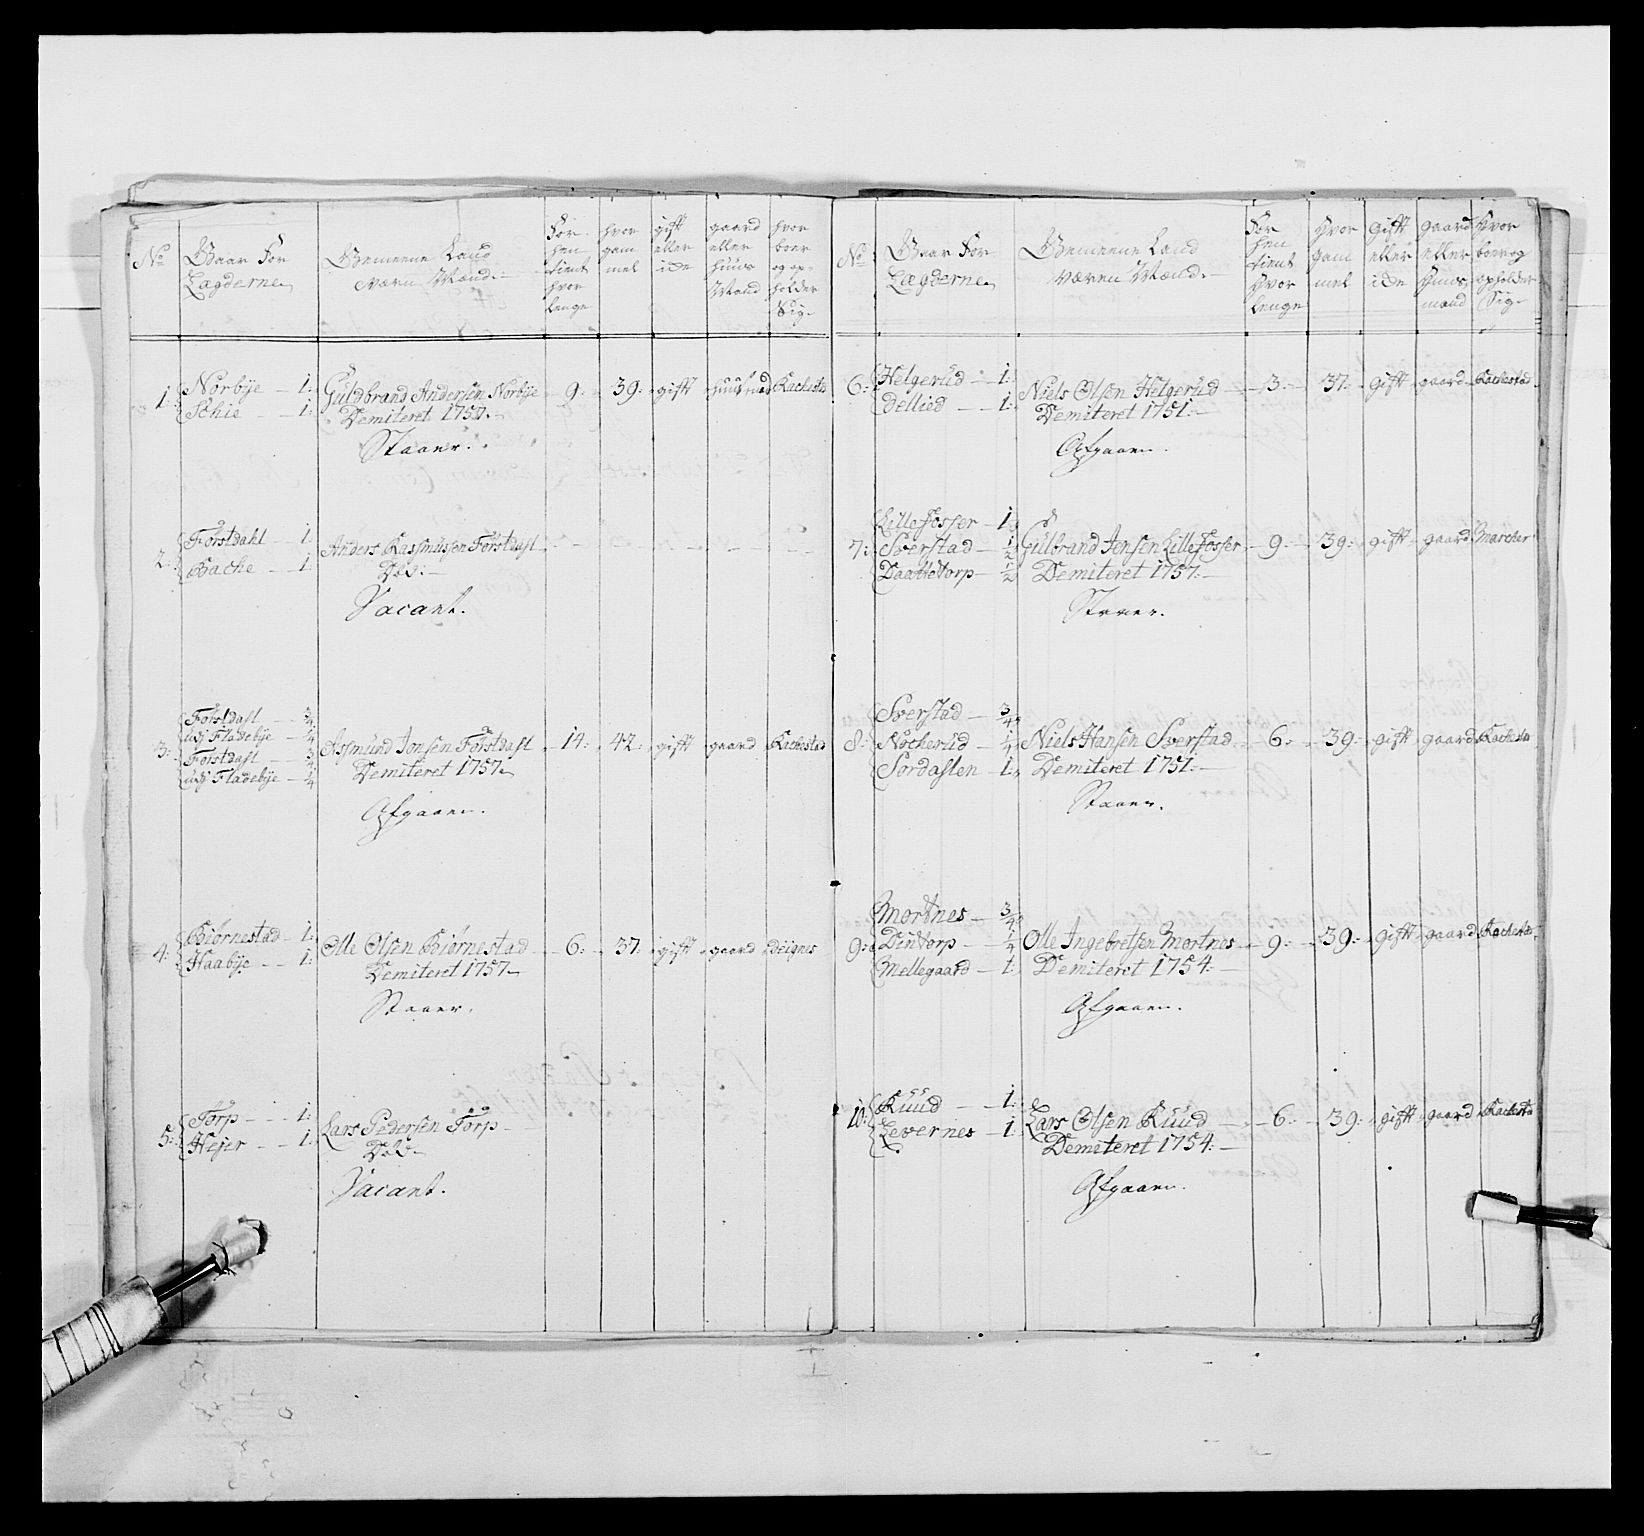 No
Gaar For
Lægderne
Gemeene Land
Værn Mænd.
For
hen
tient
hvor
lenge
hvor
gam
mel
gift
eller
ide
gaard
eller
huus
Mand
hvor
boer
og op-
holder
Sig
1:
Norbye — 1:
Schie — 1:
Guldbrand Andersen Norbye
Demiteret 1757.
Staaer.
9. 39: gift huusmand Rachestad
2:
Forstdahl — 1:
Bache — 1:
Anders Rassmussen Forstdahl
Død.
Vacant.
3:
Forstdahl — 3/4
udj Fladebye — 1/4
Forstdahl — 3/4
udj Fladebye — 1/4
Assmund Jonsen Forstdahl
Demiteret 1757.
Afgaaen.
14: 42: gift gaard Rachestad
4:
Biørnestad — 1:
Haabye — 1:
Olle Olsen Biørnestad
Demiteret 1757.
Staaer.
6: 37: gift gaard Deignes
5:
Torp — 1:
Hejer — 1:
Lars Pedersen Torp
Død.
Vacant.
No
Gaar For
Lægderne.
Gemeene Land
Væren Mænd.
For
hen
tient
hvor
lenge
Hvor
gam
mel
Gift
eller
ide
gaard
eller
Huus
mand
Hvor
boer og
opholder
Sig
6:
Helgerud — 1:
Dellied — 1:
Niels Olsen Helgerud
Demiteret 1751:
Afgaaen.
3: 37: gift gaard Rachestad
7:
Lillefosser — 1:
Sverstad — 1/2
Daattetorp — 1/2
Gulbrand Jensen Lillefosser
Demiteret 1757:
Staaer.
9: 39: gift gaard Marcher
8:
Sverstad — 3/4
Nocherud — 1/4
Sordahlen — 1:
Niels Hansen Sverstad
Demiteret 1757:
Staaer.
6: 39: gift gaard Rachestad
9:
Mortnes — 3/4
Dintorp — 1/4
Mellegaard — 1:
Olle Ingebretsen Mortnes
Demiteret 1754:
Afgaaen.
9: 39: gift gaard Rachestad
10:
Ruud — 1:
Levernes — 1:
Lars Olsen Ruud
Demiteret 1754:
Afgaaen.
6: 39: gift gaard Rachestad